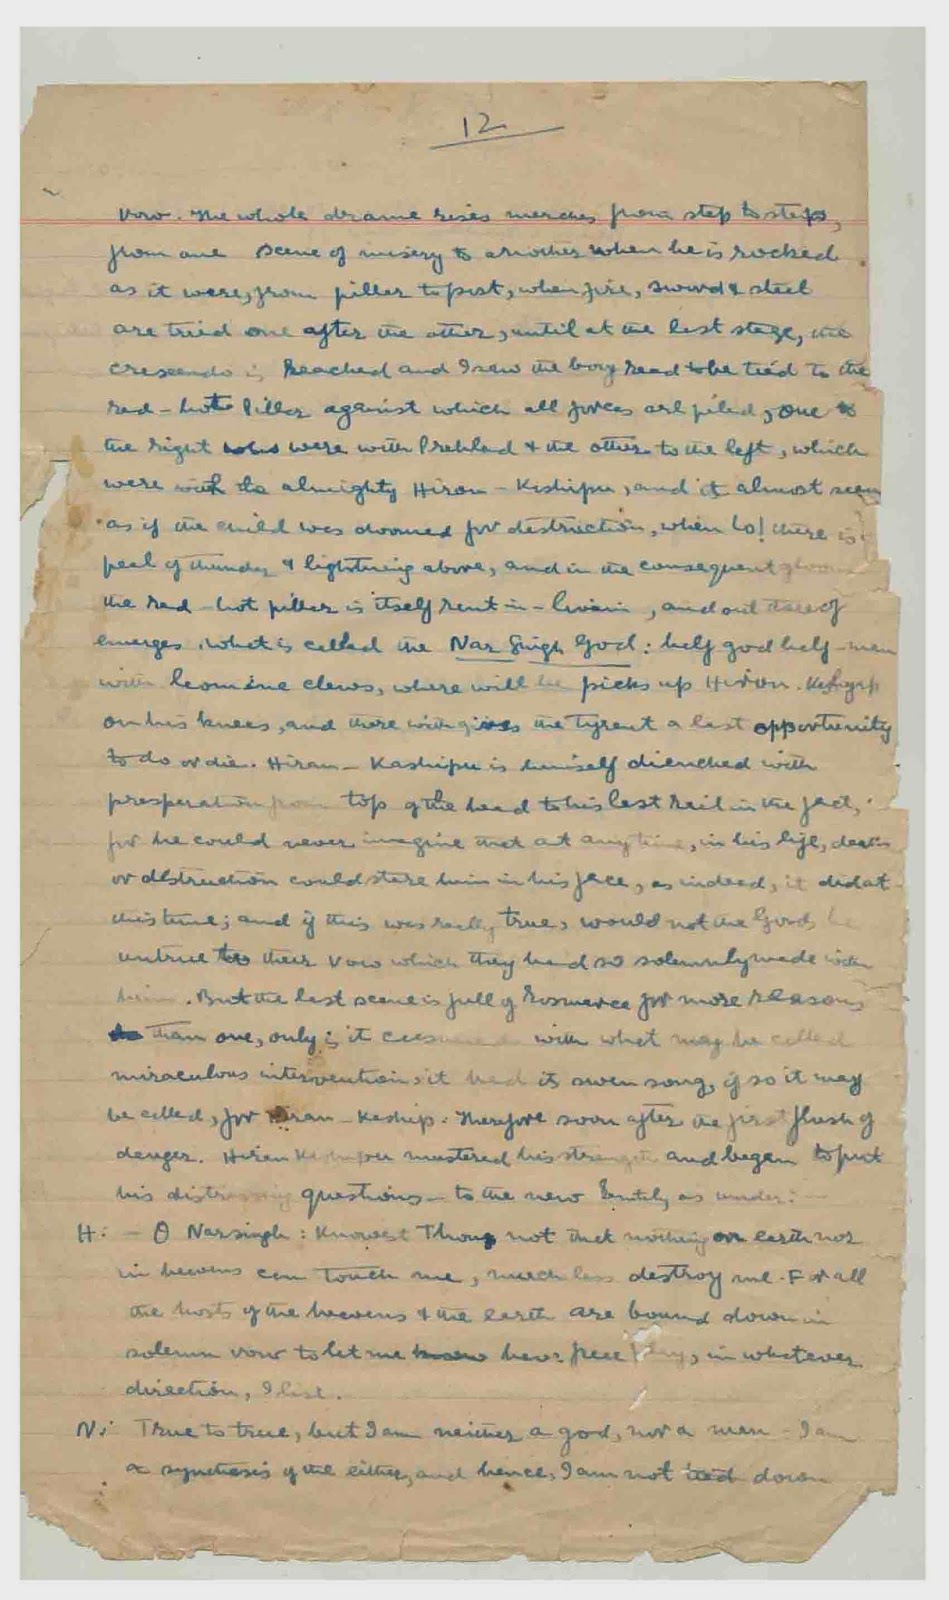 12
vow. The whole drama rises marches from step to step,
from one scene of misery to another when he is rocked
as it were, from pillar to post, when fire, sword & steel
are tried one after the other, until at the last stage, the
crescendo is reached and I saw the boy read to be tied to the
red-hot Pillar against which all forces are piled, one to
the right were with Prehlad & the other to the left, which
were with the almighty Hiron-Keshipu, and it almost seem
as if the child was doomed for destruction, when lo! there is
peal of thunder & lightning above, and in the consequent gloom
the red-hot piller is itself rent-in-twain, and out there of
emerges what is called the Nar Singh God: half god half-man
with leonine claws, where will he picks up Hiron.
on his knees, and there with gives the tyrant a last opportunity
to do or die. Hiran-Kashipu is himself drenched with
presperation from top of the head to his last nail in the feet,
for he could never imagine that at anytime, in his life, death
or destruction could stare him in his face, as indeed, it did at
this time; and if this was really true, would not the Gods be
untrue to their vow which they had so solemnly made with
him. But the last scene is full of romance for more reasons
than one, only is it with what may be called
miraculous intervention, it had its swan song, if so it may
be called, for Hiran-Keship. Therefore soon after the first flush of
danger. Hiren Keshipu mustered his strength and began to put
his distressing questions - to the new Entity as under:-
H: - O Narsingh: Knowest Thou not that nothing on earth nor
in heavens can touch me, much less destroy me. For all
the hosts of the heavens & the earth are bound down in
solemn vow to let me have free play, in whatever
direction, I list.
N: True to true, but I am neither a god, nor a man - I am
a synthesis of the either, and hence, I am not tied down